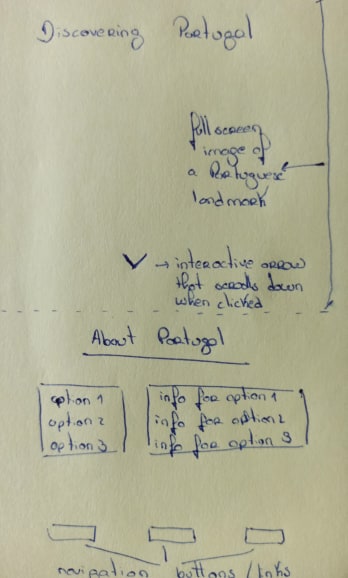 Discovering Portugal
full screen
image of
a Portuguese
landmark
→ interactive arrow
that scrolls down
when clicked
About Portugal
option 1
option 2
option 3
info for option 1
info for option 2
info for option 3
navigation buttons / links